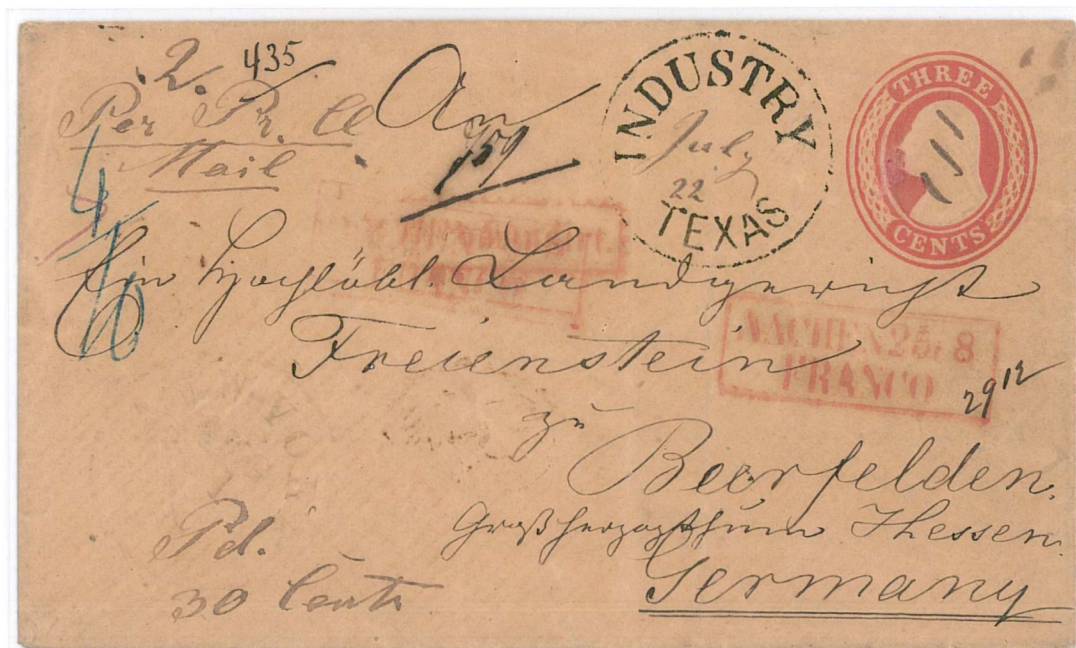 2. 435
Per Pr. Cl
Mail
An
159
INDUSTRY
July
22
TEXAS
THREE
CENTS
4/10
Ein Hochlöbl. Landgericht
Freienstein
AACHEN 25 8
FRANCO
29 12
zu
Beerfelden.
Großherzogthum Hessen.
Germany
Pd.
30 Cents